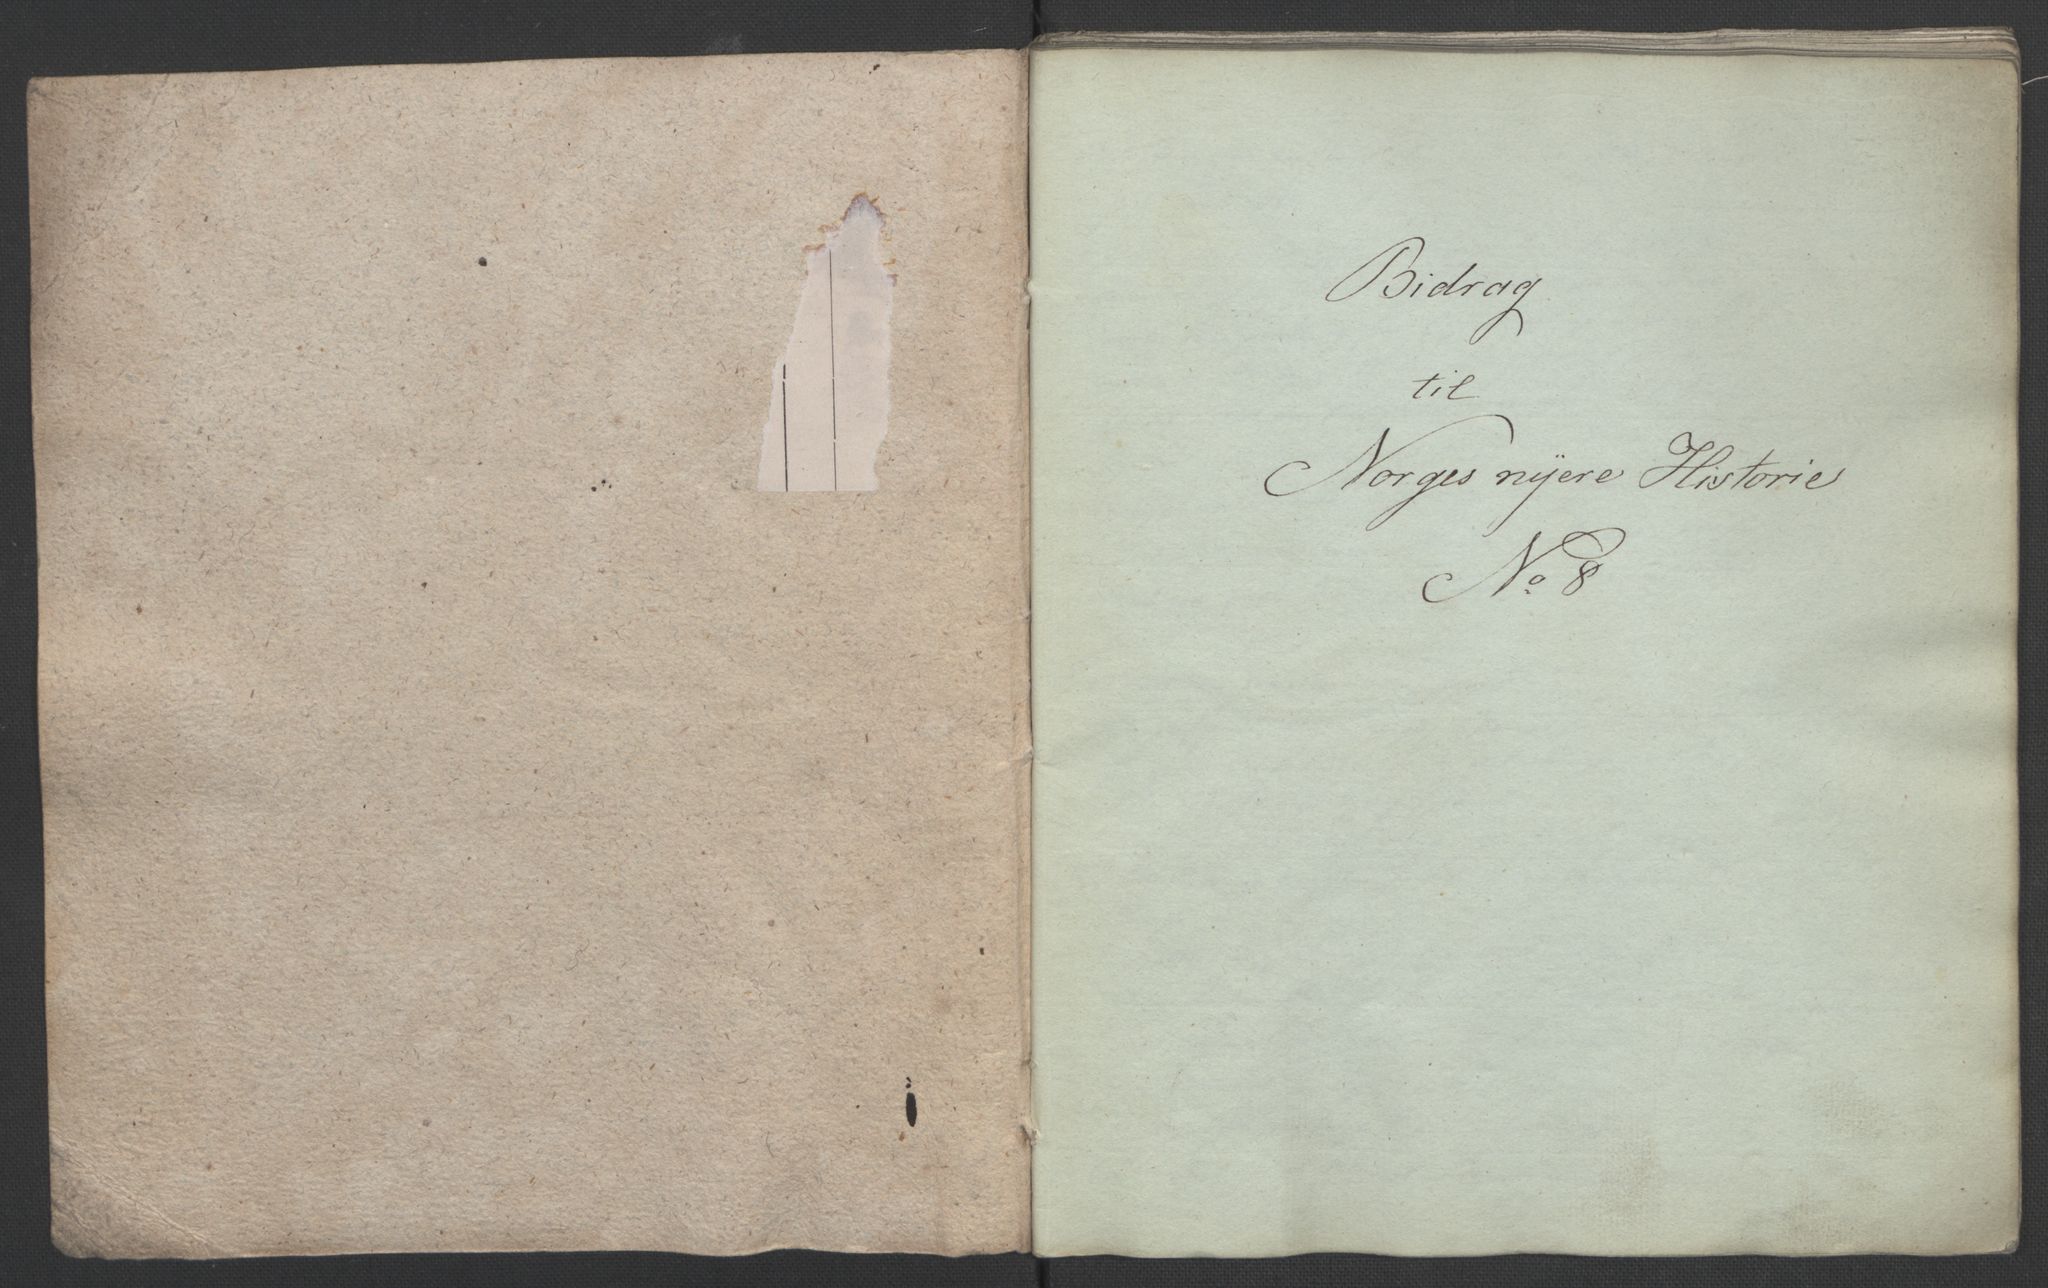 Bidrag
til
Norges nÿere Historie
No 8